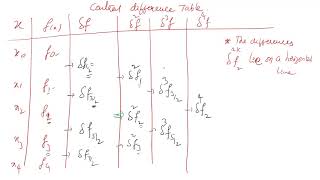 Central difference Table
x f(x) δf δ²f δ³f δ⁴f
x₀ f₀
δf₁/₂
x₁ f₁ δ²f₁
δf₃/₂ δ³f₃/₂
x₂ f₂ δ²f₂ δ⁴f₂
δf₅/₂ δ³f₅/₂
x₃ f₃ δ²f₃
δf₇/₂
x₄ f₄
* The differences
δ²ᵏf₂ lie on a horizontal
line